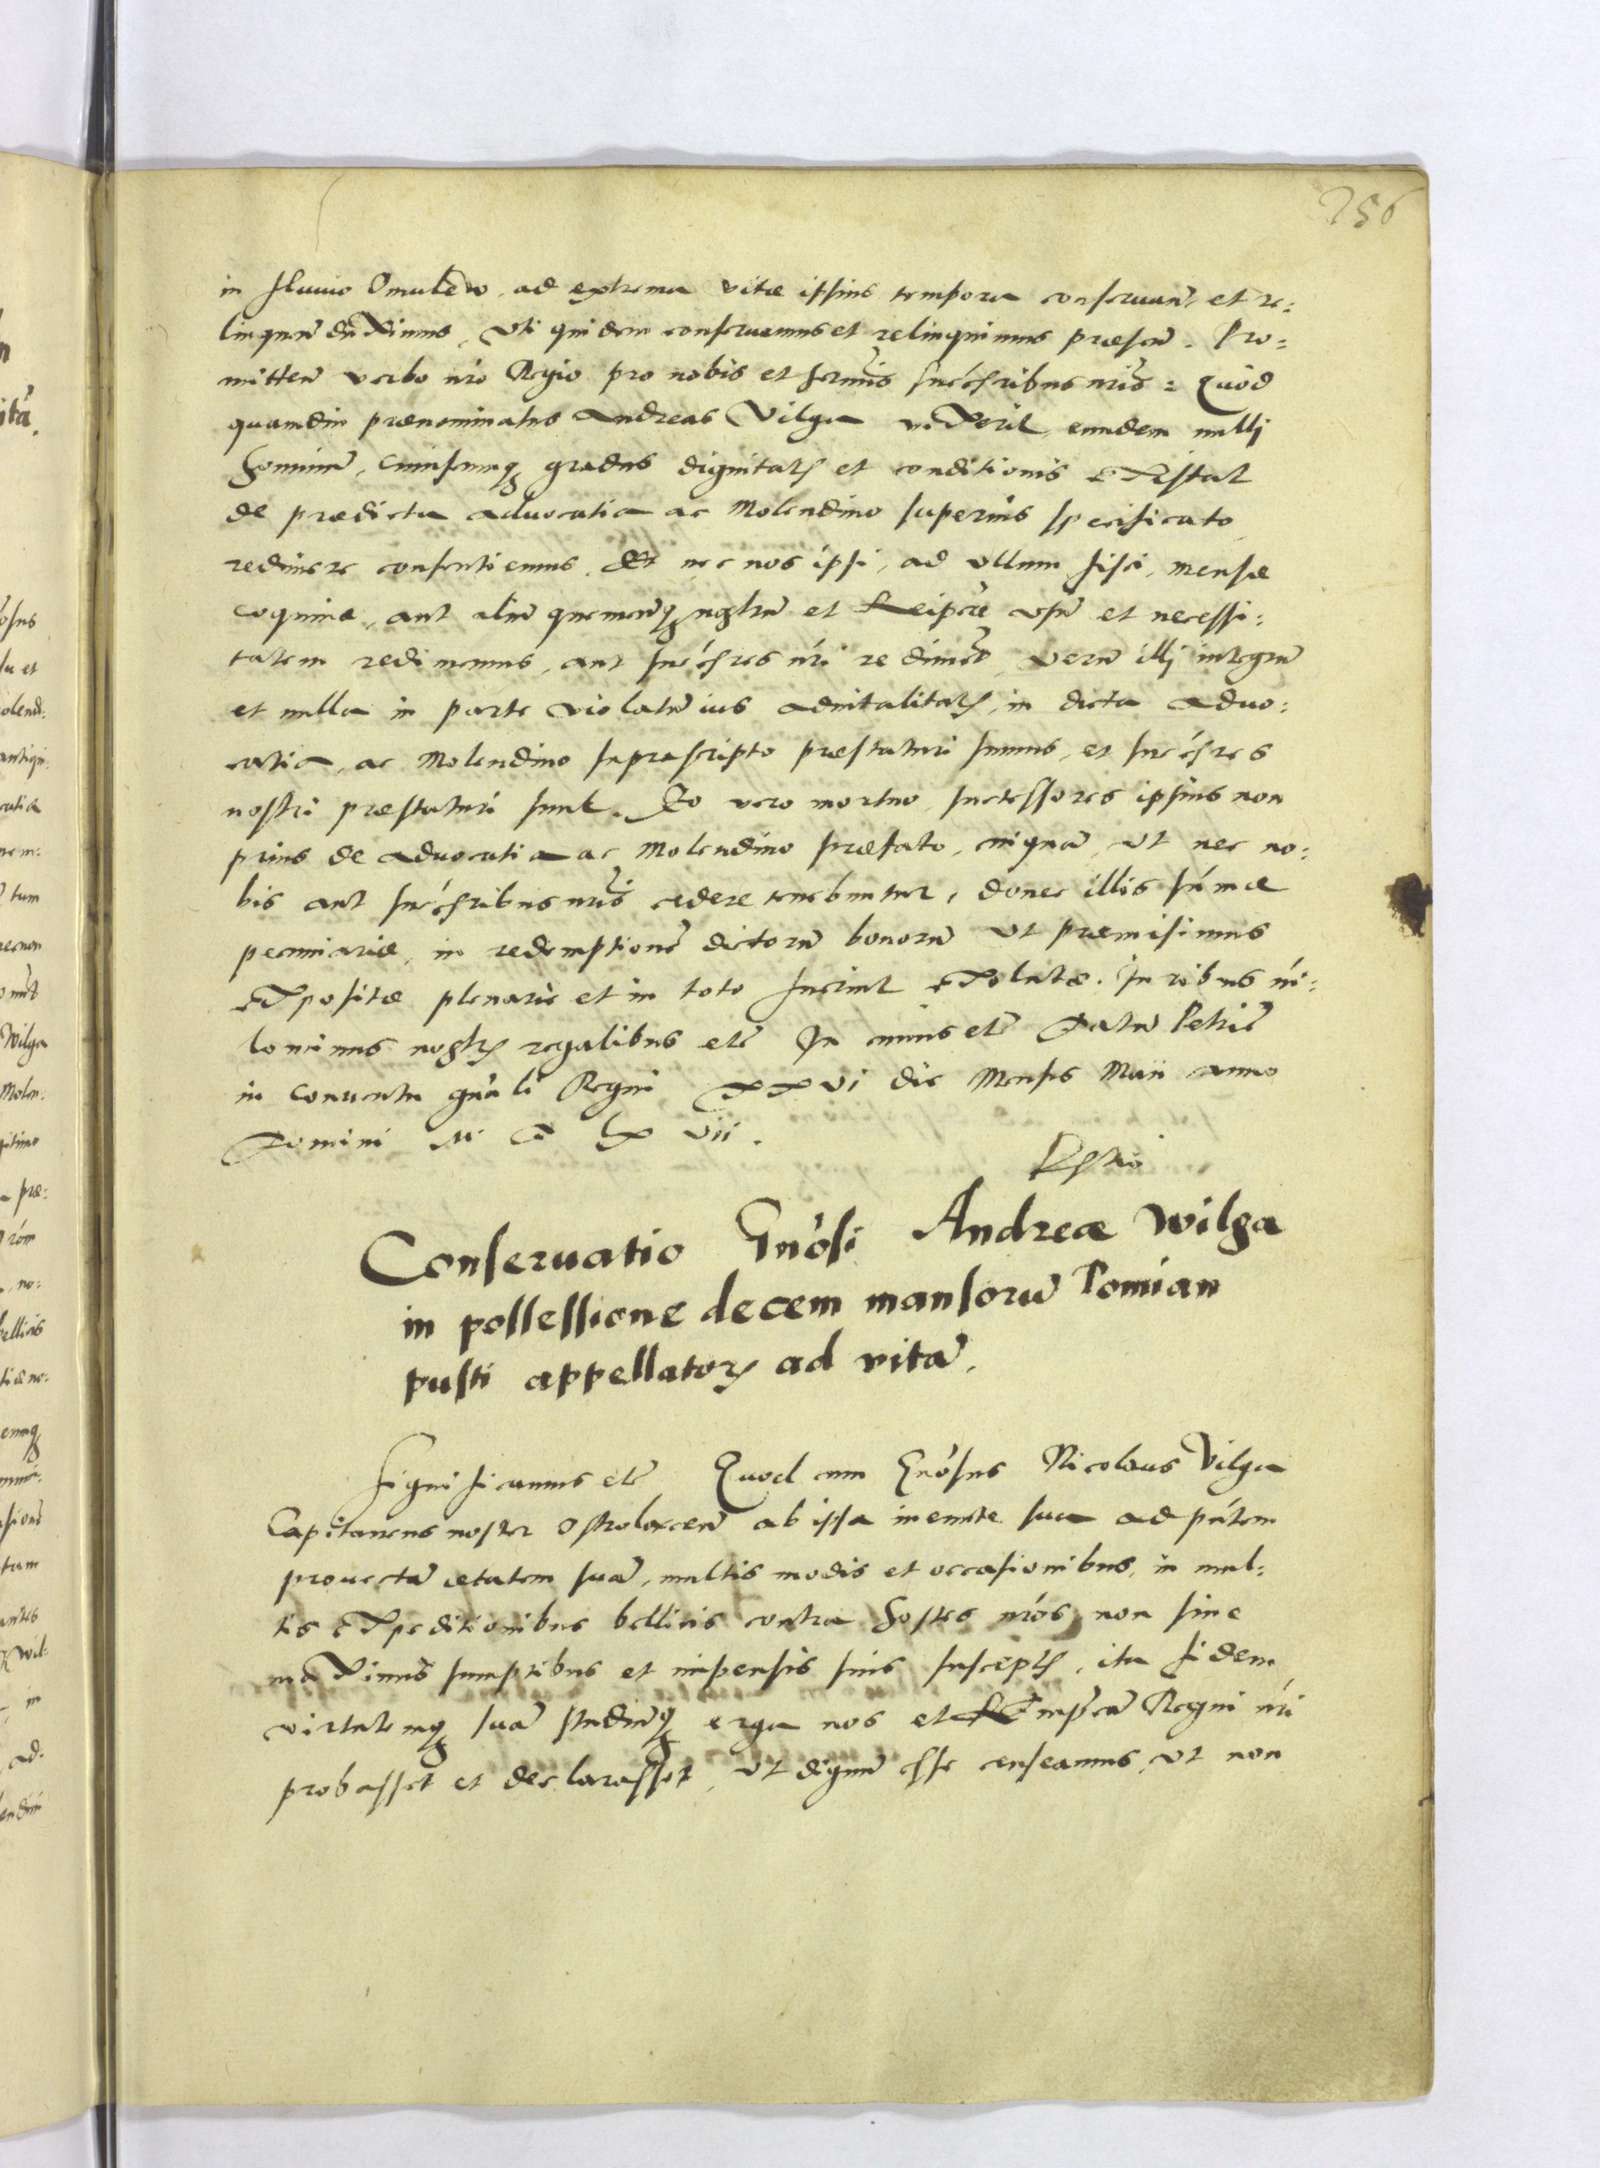 256
in fluuio Omulew, ad extrema vitæ ipsius tempora conseruan̄, et re:
linquen̄ duximus, Uti quidem conseruamus et relinquimus præsen̄. Pro:
mitten̄ verbo nr̄o Regio pro nobis et serm̄is succ̄sribus nr̄is: Quod
quamdiu prænominatus Andreas Vilga vixerit, eundem nulli
hominum̄, cuiuscunq̃ gradus dignitatis et conditionis existat
de prædicta aduocatia ac Molendino superius specificato
redimere consentiemus. Et nec nos ipsi, ad ullum fisci, mensæ
coquinæ, aut aliū quemcunq̃ nostrū et Reipcæ usū et necessi:
tatem redimemus, aut succ̄sres nr̄i rediment, verū illj integrū
et nulla in parte violatū ius aduitalitatis, in dicta aduo:
catia, ac Molendino suprascripto præstaturi sumus, et succ̄sres
nostri præstaturi sunt. Eo vero mortuo, successores ipsius non
prius de aduocatia ac Molendino præfato, cuiquā, ut nec no:
bis aut succ̄sribus nr̄is cedere tenebuntur, donec illis sum̄æ
pecuniariæ, in redemptionē dictorū bonorū ut præmisimus
expositæ plenarie et in toto fuerint exolutæ. Juribus ni:
lominus nostris regalibus etc̄ In cuius etc̄ Datū Petric̄
in Conuentu gnāli Regni XXVI die Mensis Maii anno
Domini M D LX vii.
Conseruatio Gnōsi Andreæ Wilga
in possessione decem mansorū Pomian
pusti appellatorꝝ ad vitā.
Significamus etc̄ Quod cum Gnōsus Nicolaus Vilga
Capitaneus noster Ostrolæcen̄ ab ipsa iuuente sua ad pn̄tem
prouectā ætatem suā, multis modis et occasionibus, in mul:
tis expeditionibus bellicis contra hostes nr̄os, non sine
maximis sumptibus et impensis suis susceptis, ita fidem
virtutemq̃ suā studiūq̃ erga nos et Rempcā Regni nr̄i
probasset et declarasset, ut dignū esse censeamus, ut non